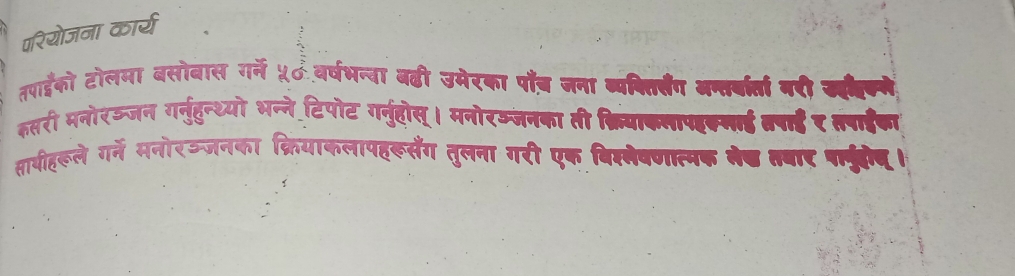 परियोजना कार्य
तपाईँको टोलमा बसोबास गर्ने ५० वर्षभन्दा बढी उमेरका पाँच जना व्यक्तिसँग अन्तर्वार्ता गरी उहाँहरूले
कसरी मनोरञ्जन गर्नुहुन्थ्यो भन्ने टिपोट गर्नुहोस् । मनोरञ्जनका ती क्रियाकलापहरूलाई तपाईं र तपाईंका
साथीहरूले गर्ने मनोरञ्जनका क्रियाकलापहरूसँग तुलना गरी एक विश्लेषणात्मक लेख तयार पार्नुहोस् ।